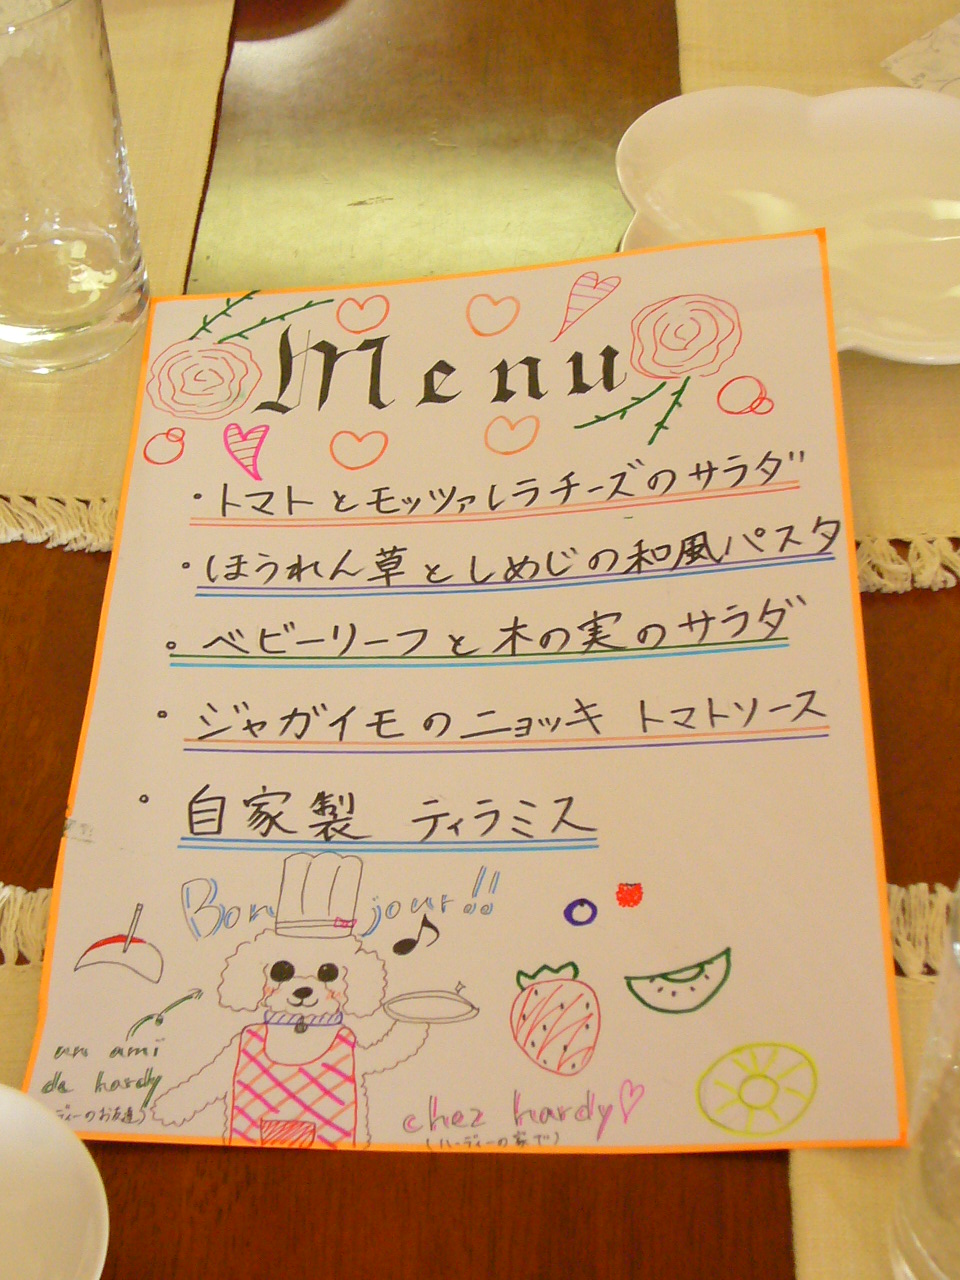 Menu
・トマトとモッツァレラチーズのサラダ
・ほうれん草としめじの和風パスタ
・ベビーリーフと木の実のサラダ
・ジャガイモのニョッキ トマトソース
・自家製 ティラミス
Bonjour!!
un ami
de hardy
ディーのお友達)
chez hardy
(ハーディーの家で)